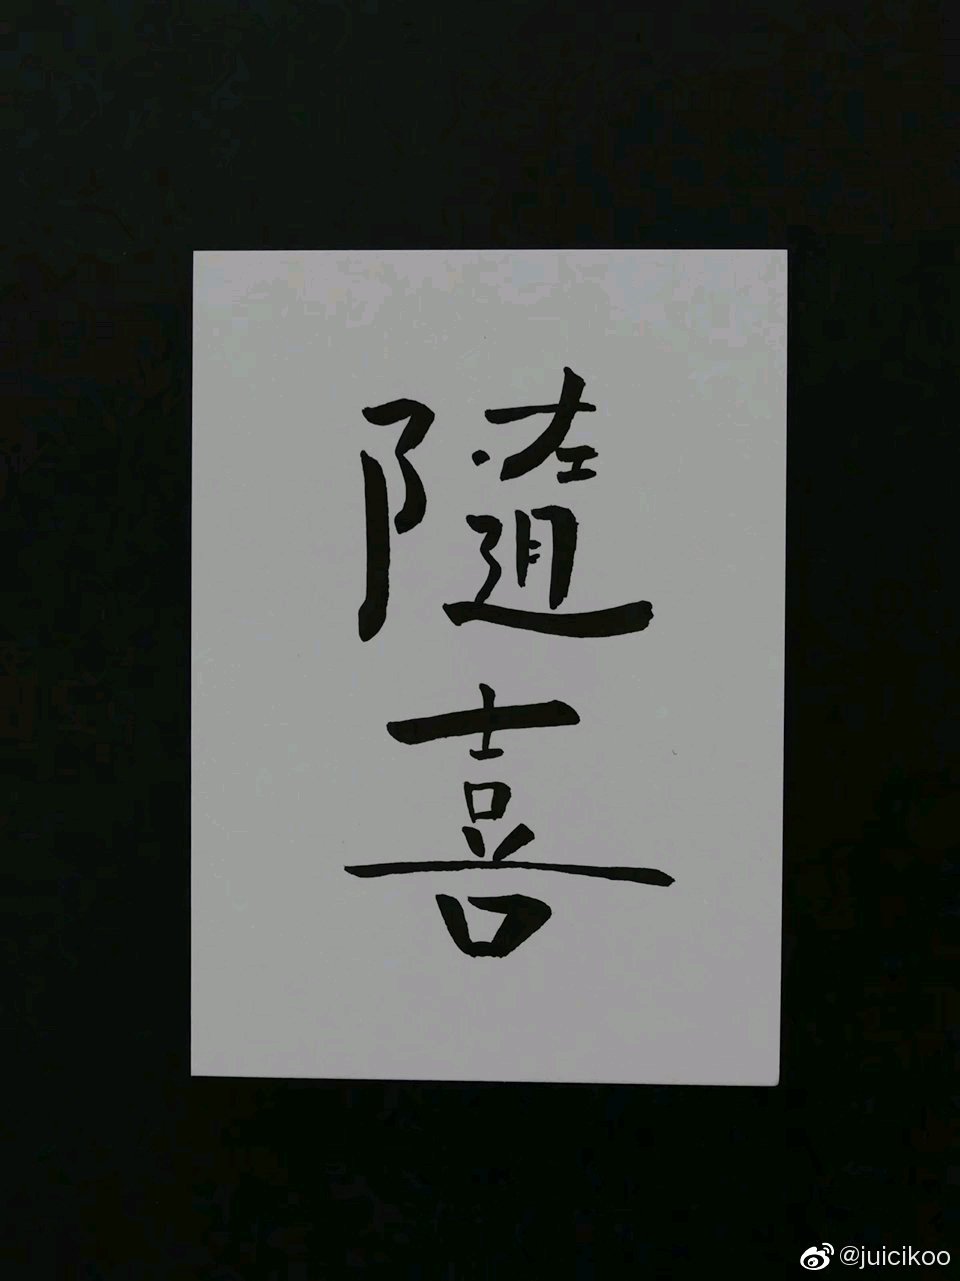 隨
喜
@juicikoo